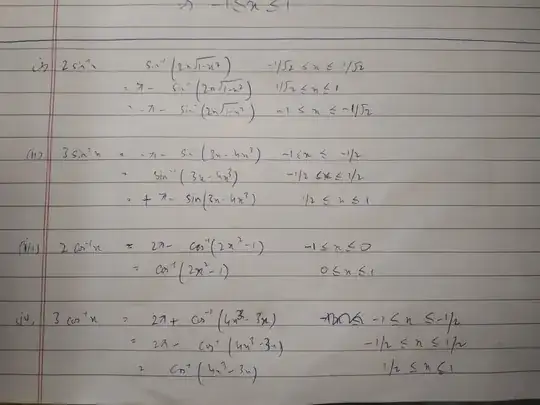 -1 ≤ x ≤ 1
i) 2 sin⁻¹x sin⁻¹(2x√1-x²) -1/√2 ≤ x ≤ 1/√2
= π - sin⁻¹(2x√1-x²) 1/√2 ≤ x ≤ 1
= -π - sin⁻¹(2x√1-x²) -1 ≤ x ≤ -1/√2
(ii) 3 sin⁻¹x = -π - sin(3x - 4x³) -1 ≤ x ≤ -1/2
= sin⁻¹(3x - 4x³) -1/2 ≤ x ≤ 1/2
= + π - sin(3x - 4x³) 1/2 ≤ x ≤ 1
(iii) 2 cos⁻¹x = 2π - cos⁻¹(2x² - 1) -1 ≤ x ≤ 0
= cos⁻¹(2x² - 1) 0 ≤ x ≤ 1
iv. 3 cos⁻¹x = 2π + cos⁻¹(4x³ - 3x) -1 ≤ x ≤ -1/2
= 2π - cos⁻¹(4x³ - 3x) -1/2 ≤ x ≤ 1/2
= cos⁻¹(4x³ - 3x) 1/2 ≤ x ≤ 1